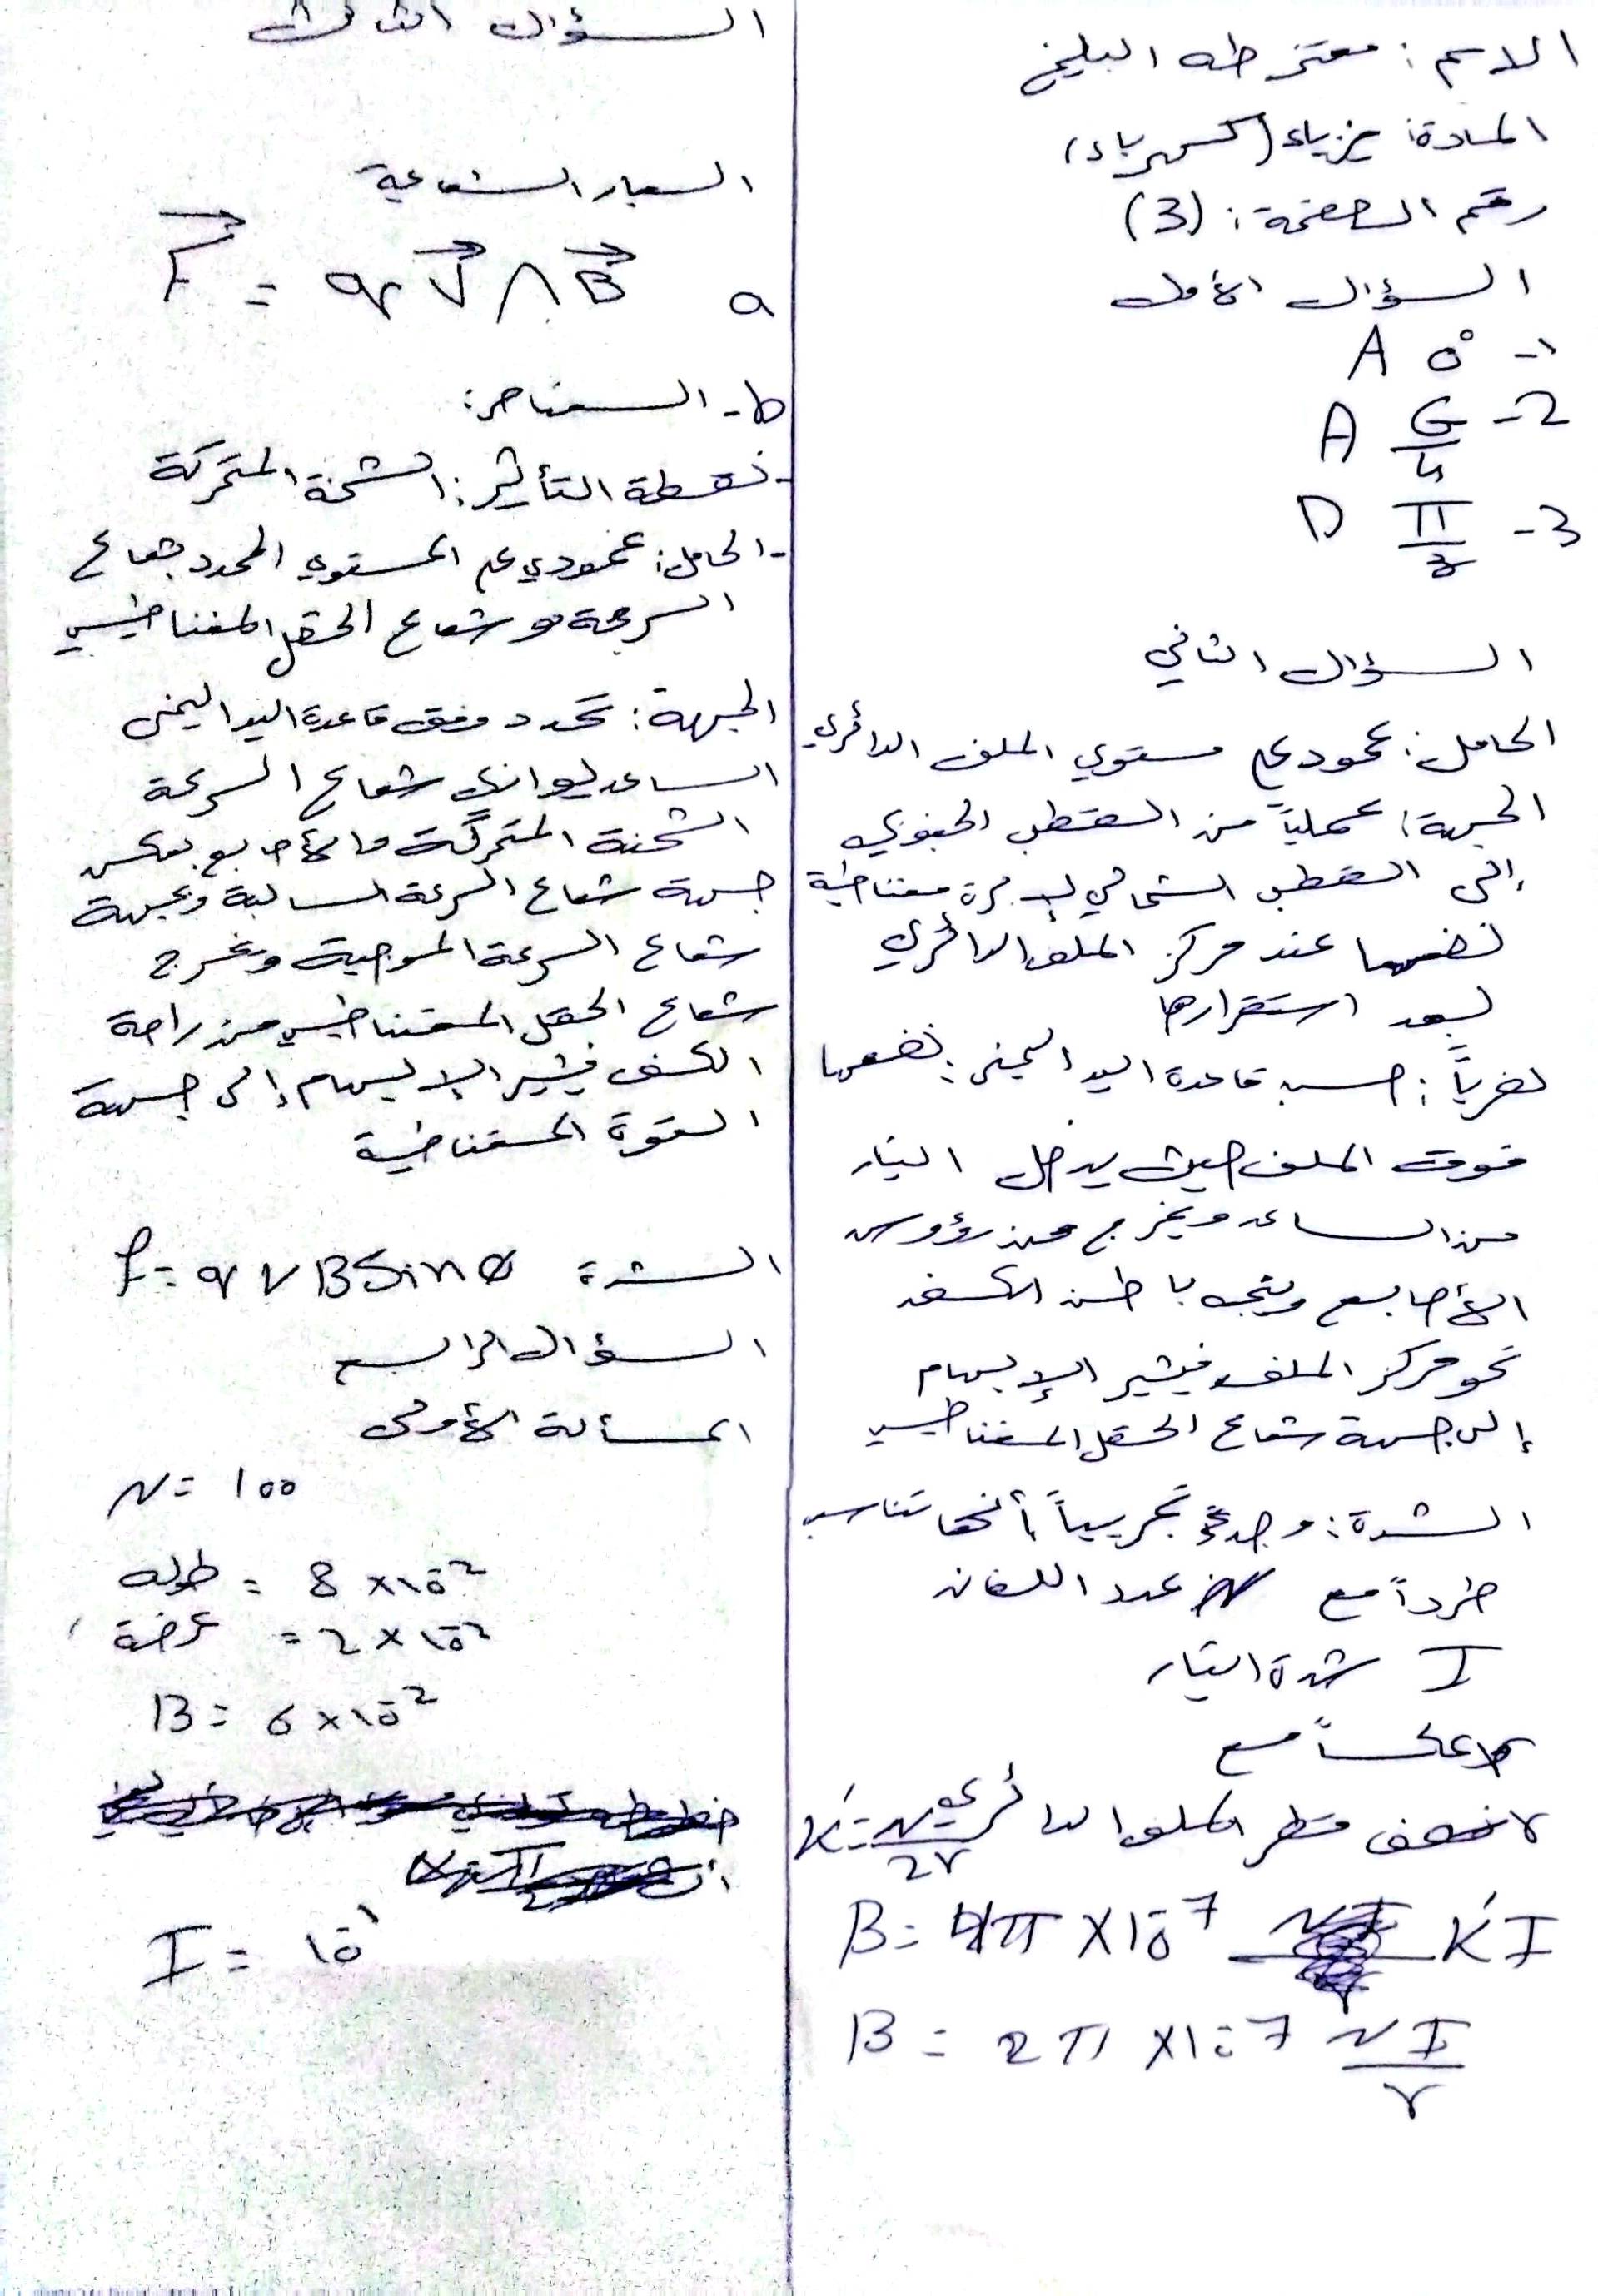 الاسم: معتز طه البليخ
المادة: فيزياء (كهرباء)
رقم الصفحة: (3)
السؤال الأول
1- 0° A
2- G/4 A
3- π/3 D
السؤال الثاني
الحامل: عمودي على مستوي الملف الدائري
الجهة: عملياً من القطب الجنوبي
إلى القطب الشمالي لإبرة مغناطيسية
نضعها عند مركز الملف الدائري
بعد استقرارها
نظرياً: حسب قاعدة اليد اليمنى: نضعها
فوق الملف حيث يدخل التيار
من الساعد ويخرج من رؤوس
الأصابع ويتجه باطن الكف
نحو مركز الملف فيشير الإبهام
إلى جهة شعاع الحقل المغناطيسي
الشدة: وجد تجريبياً أنها تتناسب
طرداً مع N عدد اللفات
I شدة التيار
عكساً مع
r نصف قطر الملف الدائري K' = N/2r
B = 4π × 10⁻⁷ K' I
B = 2π × 10⁻⁷ NI/r
السؤال الثالث
العبارة الشعاعية
a F⃗ = q V⃗ ∧ B⃗
b- العناصر:
- نقطة التأثير: الشحنة المتحركة
- الحامل: عمودي على المستوي المحدد بشعاع
السرعة و شعاع الحقل المغناطيسي
الجهة: تحدد وفق قاعدة اليد اليمنى
الساعد يوازي شعاع السرعة
الشحنة المتحركة والأصابع بعكس
جهة شعاع السرعة السالبة وبجهة
شعاع السرعة الموجبة ويخرج
شعاع الحقل المغناطيسي من راحة
الكف فيشير الإبهام إلى جهة
القوة المغناطيسية
الشدة F = q v B sin θ
السؤال الرابع
المسألة الأولى
N = 100
طوله = 8 × 10⁻²
عرضه = 2 × 10⁻²
B = 6 × 10⁻²
I = 10⁻¹